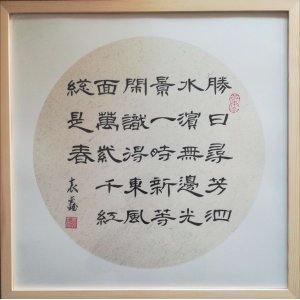 勝日尋芳泗
水濵無邊光
景一時新等
閑識得東風
面萬紫千紅
総是春